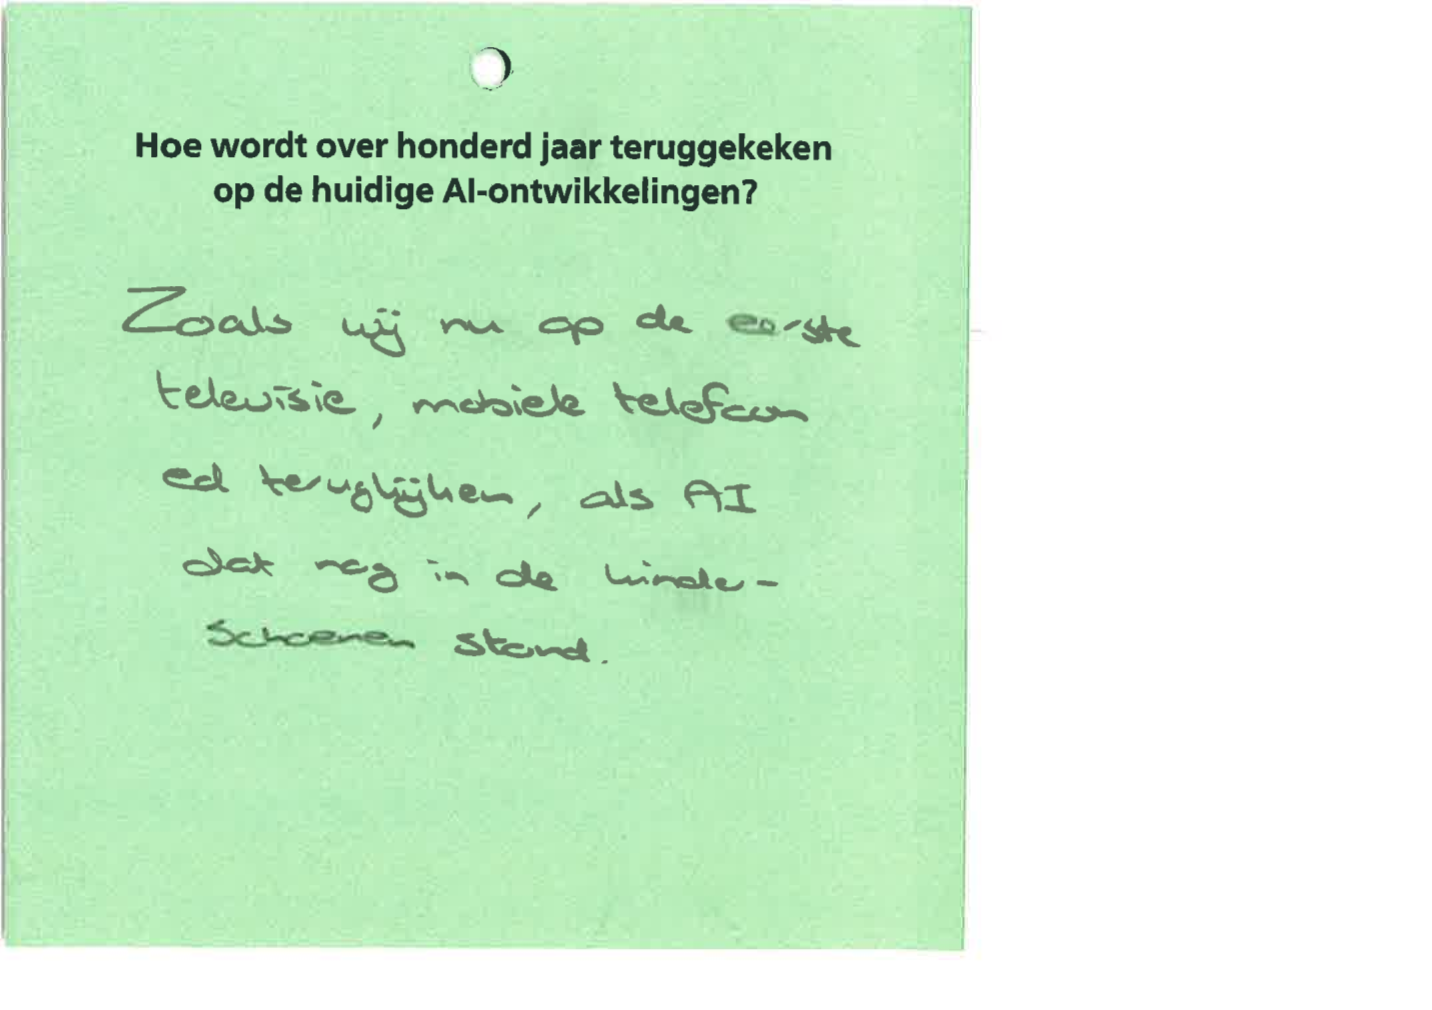 Hoe wordt over honderd jaar teruggekeken
op de huidige AI-ontwikkelingen?
Zoals wij nu op de eerste
televisie, mobiele telefoon
ed terugkijken, als AI
dat nog in de kinder-
schoenen stond.